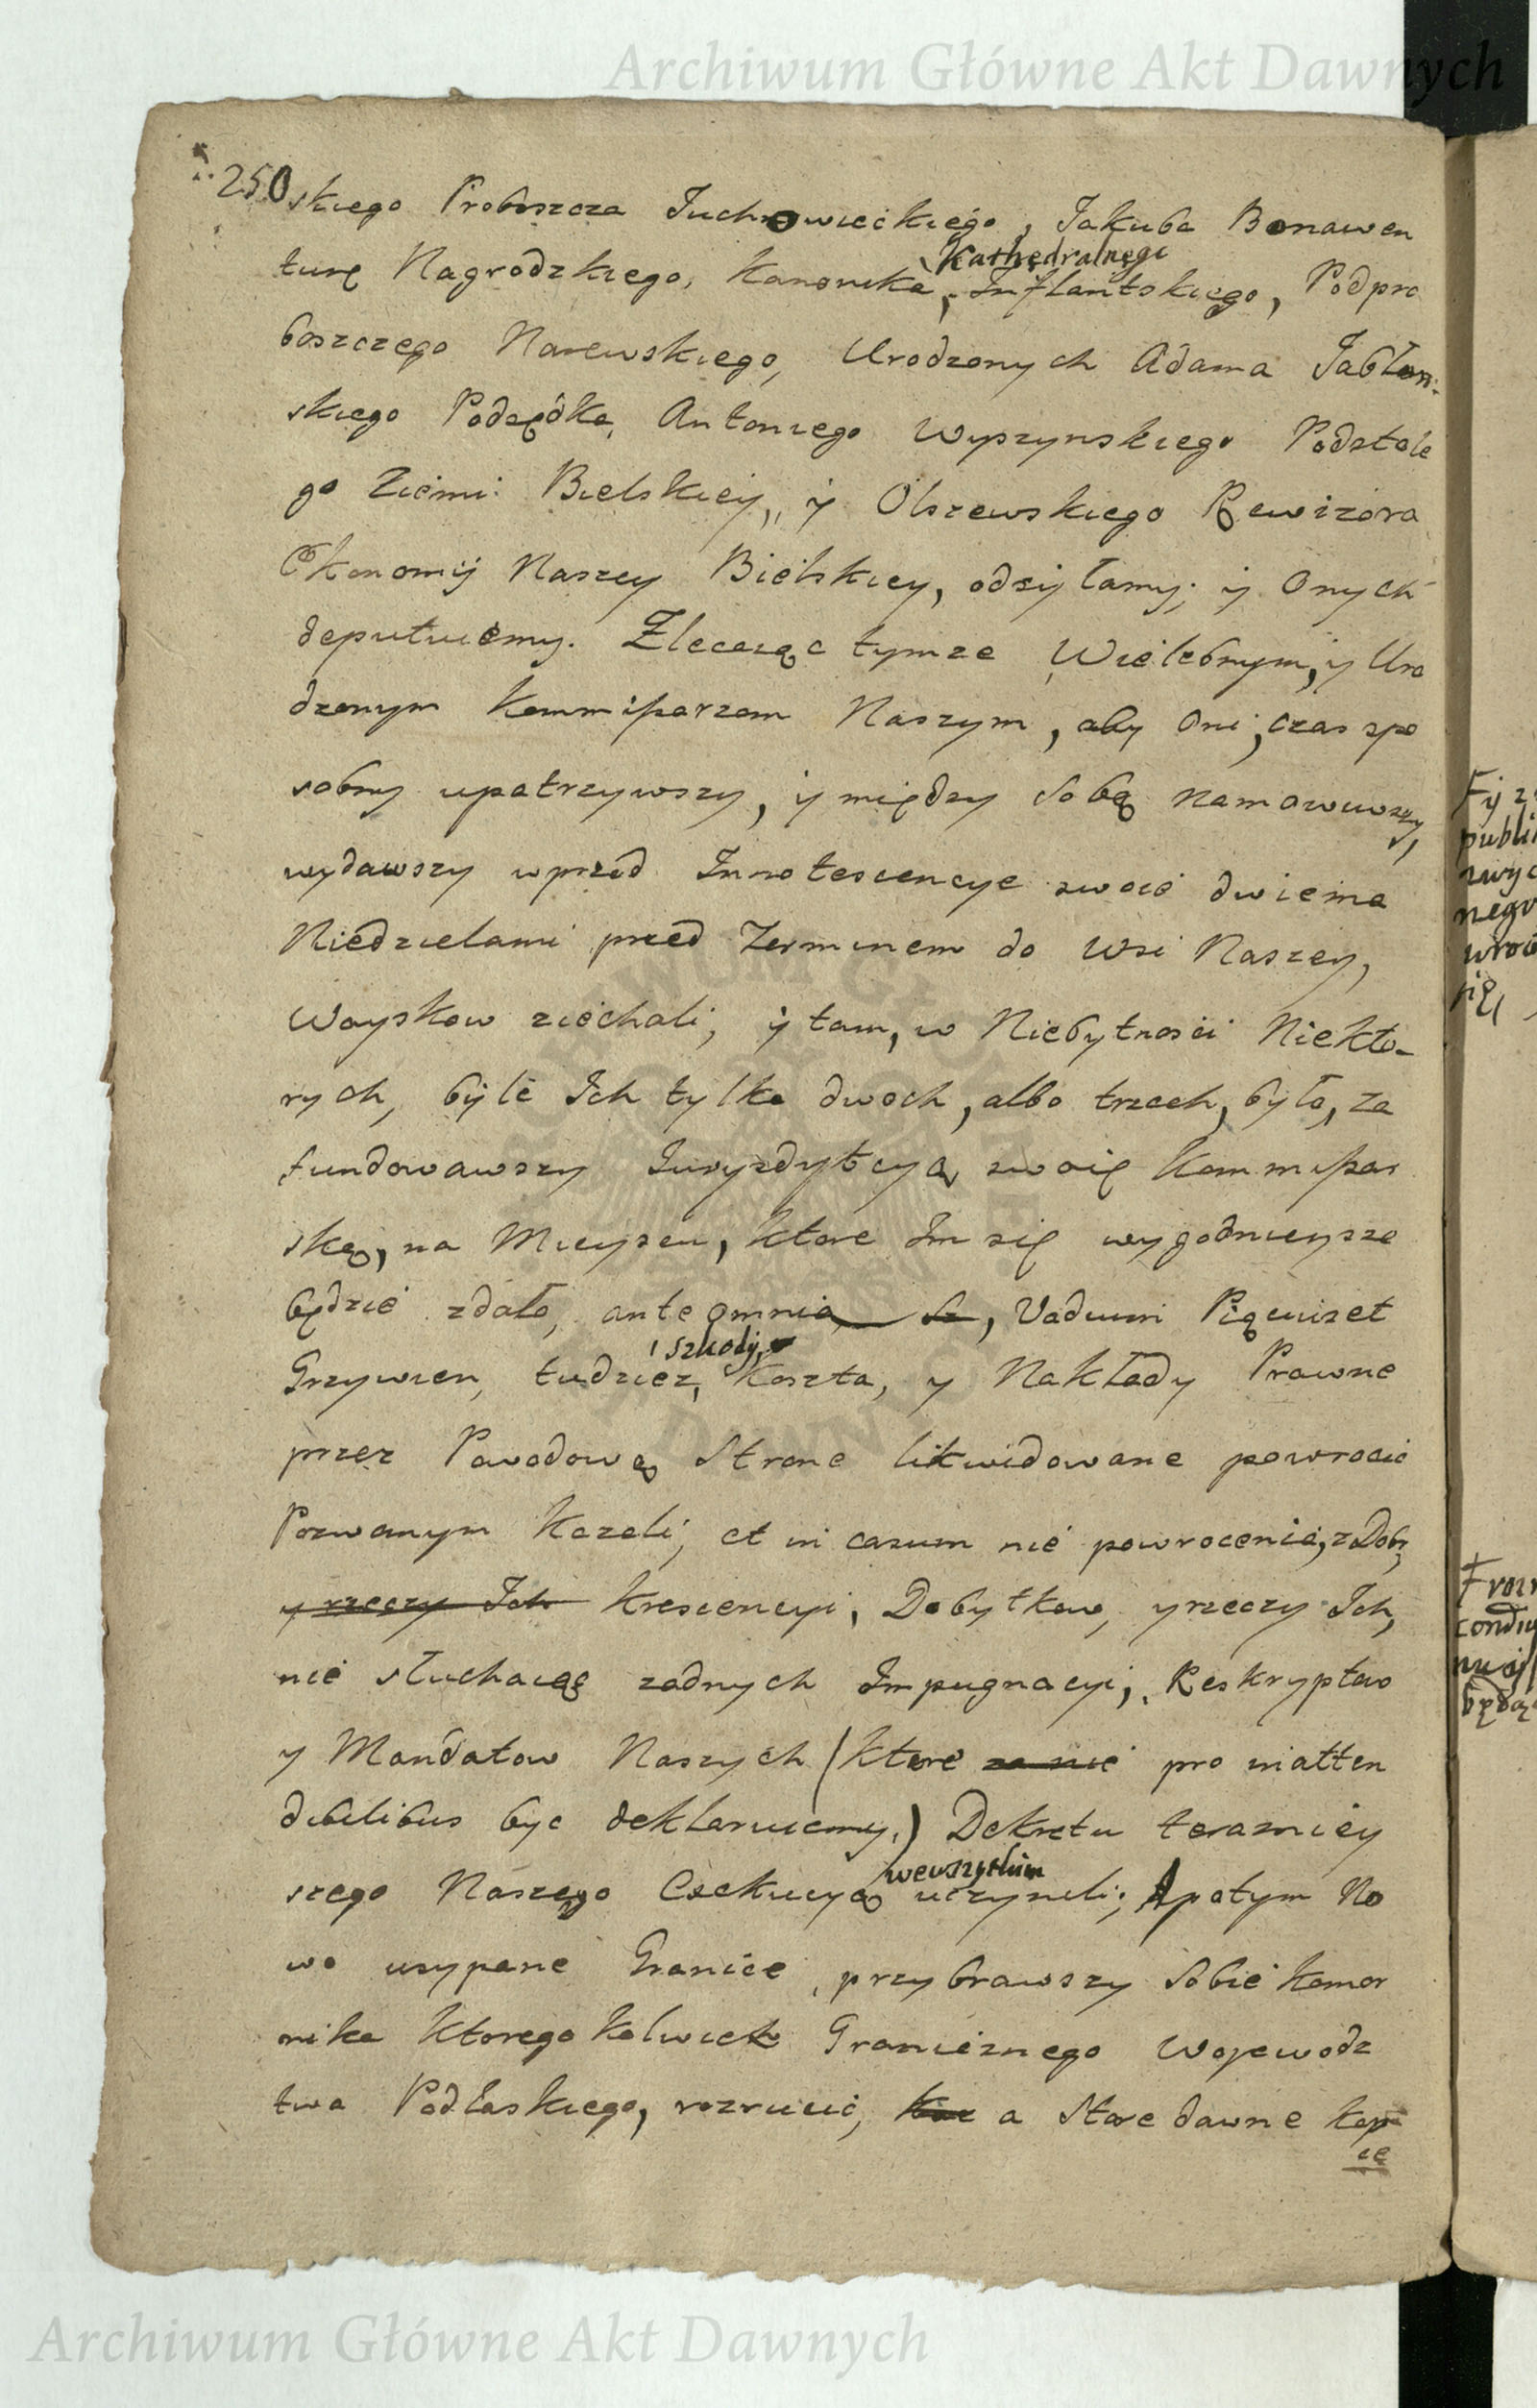 Archiwum Główne Akt Dawnych
250
skiego Proboszcza Juchnowieckiego, Jakuba Bonawen
turę Nagrodzkiego, Kanonika, Kathedralnego Inflantskiego, Podpro
boszczego Narewskiego, Urodzonych Adama Jabłon:
skiego Podsędka, Antoniego Wyszynskiego Podstole
go Ziemi Bielskiey, y Olszewskiego Rewizora
Ekonomij Naszey Bielskiey, odsyłamy; y Onych
deputuiemy. Zlecaiąc tymze Wielebnym, y Uro
dzonym Kommissarzom Naszym, aby Oni, czas spo
sobny upatrzywszy, y między Sobą namowiwszy,
wydawszy wprzod Innotescencye swoie dwiema
Niedzielami przed Terminem do Wsi Naszey,
Woyskow ziechali, y tam, w Niebytnosci Niekto-
rych, byle Ich tylko dwoch, albo trzech, było, za
fundowawszy Juryzdykcyą swoię Kommissar
ską, na Mieyscu, ktore Im się wygodnieysze
będzie zdało, ante omnia, Vadium Pięciuset
Grzywien, tudziez, szkody, Koszta, y Nakłady Prawne
przez Powodową Strone likwidowane powrocic
Pozwanym Kazali, et in casum nie powrocenia, z Dobr,
y rzeczy Ich Krescencyi, Dobytkow, y rzeczy Ich,
nie słuchaiąc zadnych Impugnacyi, Reskryptow
y Mandatow Naszych (ktore za nie pro inatten
dibilibus byc deklaruiemy,) Dekretu terazniey
szego Naszego Exekucyą wewszystkim uczynili; A potym No
wo usypane Granice, przybrawszy Sobie Komor
nika ktoregokolwiek Granicznego Wojewodz
twa Podlaskiego, rozrucić, a Stare dawne Kop
ce
publi
Archiwum Główne Akt Dawnych